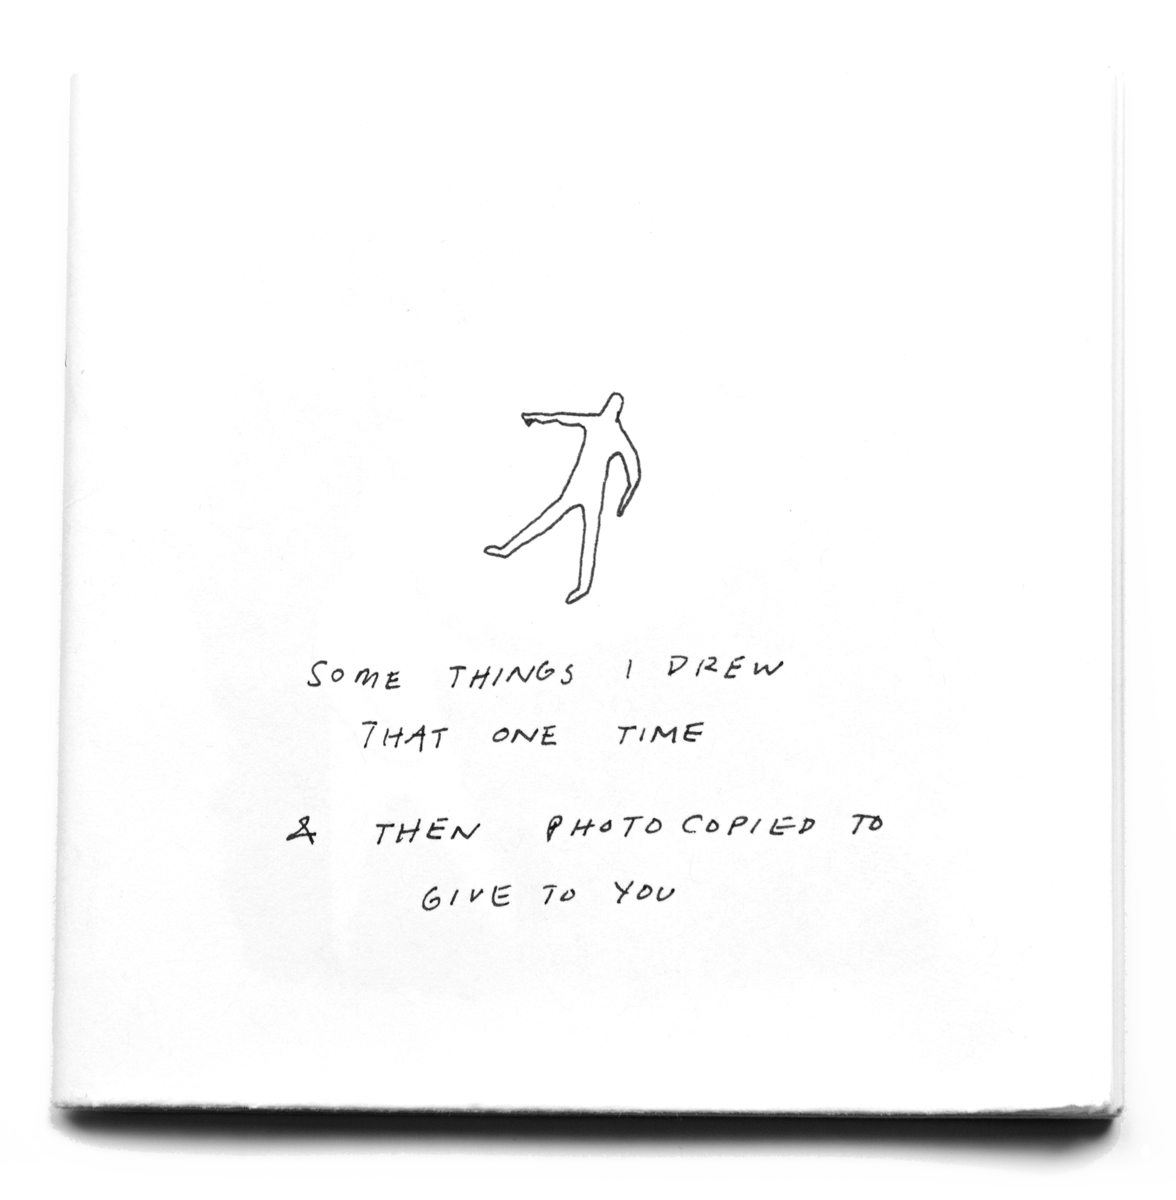 SOME THINGS I DREW
THAT ONE TIME
& THEN PHOTOCOPIED TO
GIVE TO YOU